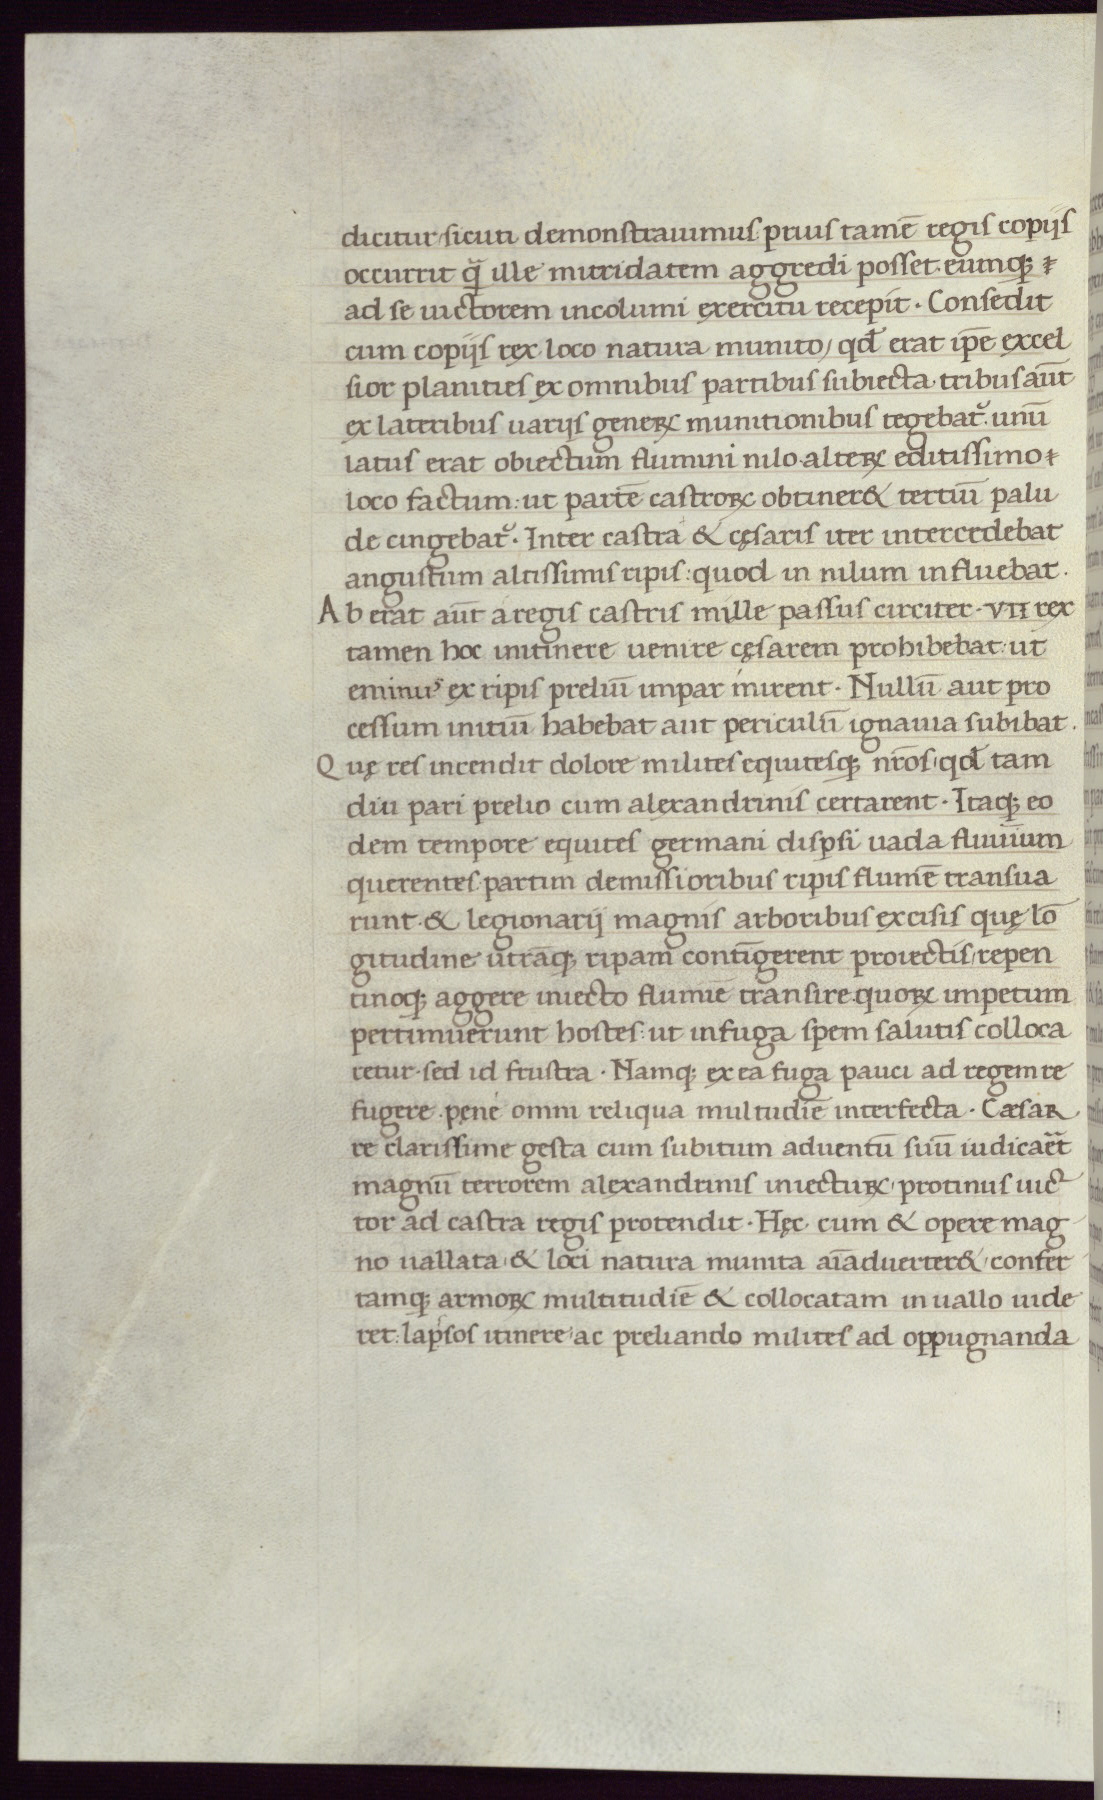 dicitur, sicuti demonstrauimus, prius tamē regis copijs
occurrit q̄ ille mitridatem aggredi posset. eumq;
ad se uictorem incolumi exercitu recepit. Consedit
cum copijs rex loco natura munito, qđ erat ip̄e excel
sior planities ex omnibus partibus subiecta. tribus aūt
ex lateribus uarijs generꝝ munitionibus tegebat᷑. unū
latus erat obiectum flumini nilo. alterꝝ editissimo
loco factum: ut partē castrorꝝ obtiner& tertiū palu
de cingebat᷑. Inter castra & cęsaris iter intercedebat
angustum altissimis ripis: quod in nilum influebat.
Ab erat aūt a regis castris mille passus circiter. VII rex
tamen hoc initinere uenire cęsarem prohibebat: ut
eminus ex ripis preliū impar inirent. Nullū aut pro
cessum initiū habebat aut periculū ignauia subibat.
Quę res incendit dolore milites equitesq; nr̄os, qđ tam
diu pari prelio cum alexandrinis certarent. Itaq; eo
dem tempore equites germani disp̱si uada fluuium
querentes partim demissioribus ripis flumē transua
runt. & legionarij magnis arboribus excisis quę lō
gitudine utrāq; ripam contīgerent proiectis, repen
tinoq; aggere iniecto flumīe transire. quorꝝ impetum
pertimuerunt hostes: ut in fuga spem salutis colloca
retur. sed id frustra. Namq; ex ea fuga pauci ad regem re
fugere. pęne omni reliqua multudīe interfecta. Cæsar
re clarissime gesta cum subitum aduentū suū iudicaēt
magnū terrorem alexandrinis iniecturꝝ, protinus uic
tor ad castra regis protendit. Hęc cum & opere mag
no uallata, & loci natura munita aīaduerter&, confer
tamq; armorꝝ multitudīe & collocatam in uallo uide
ret. lapsos itinere, ac preliando milites ad oppugnanda